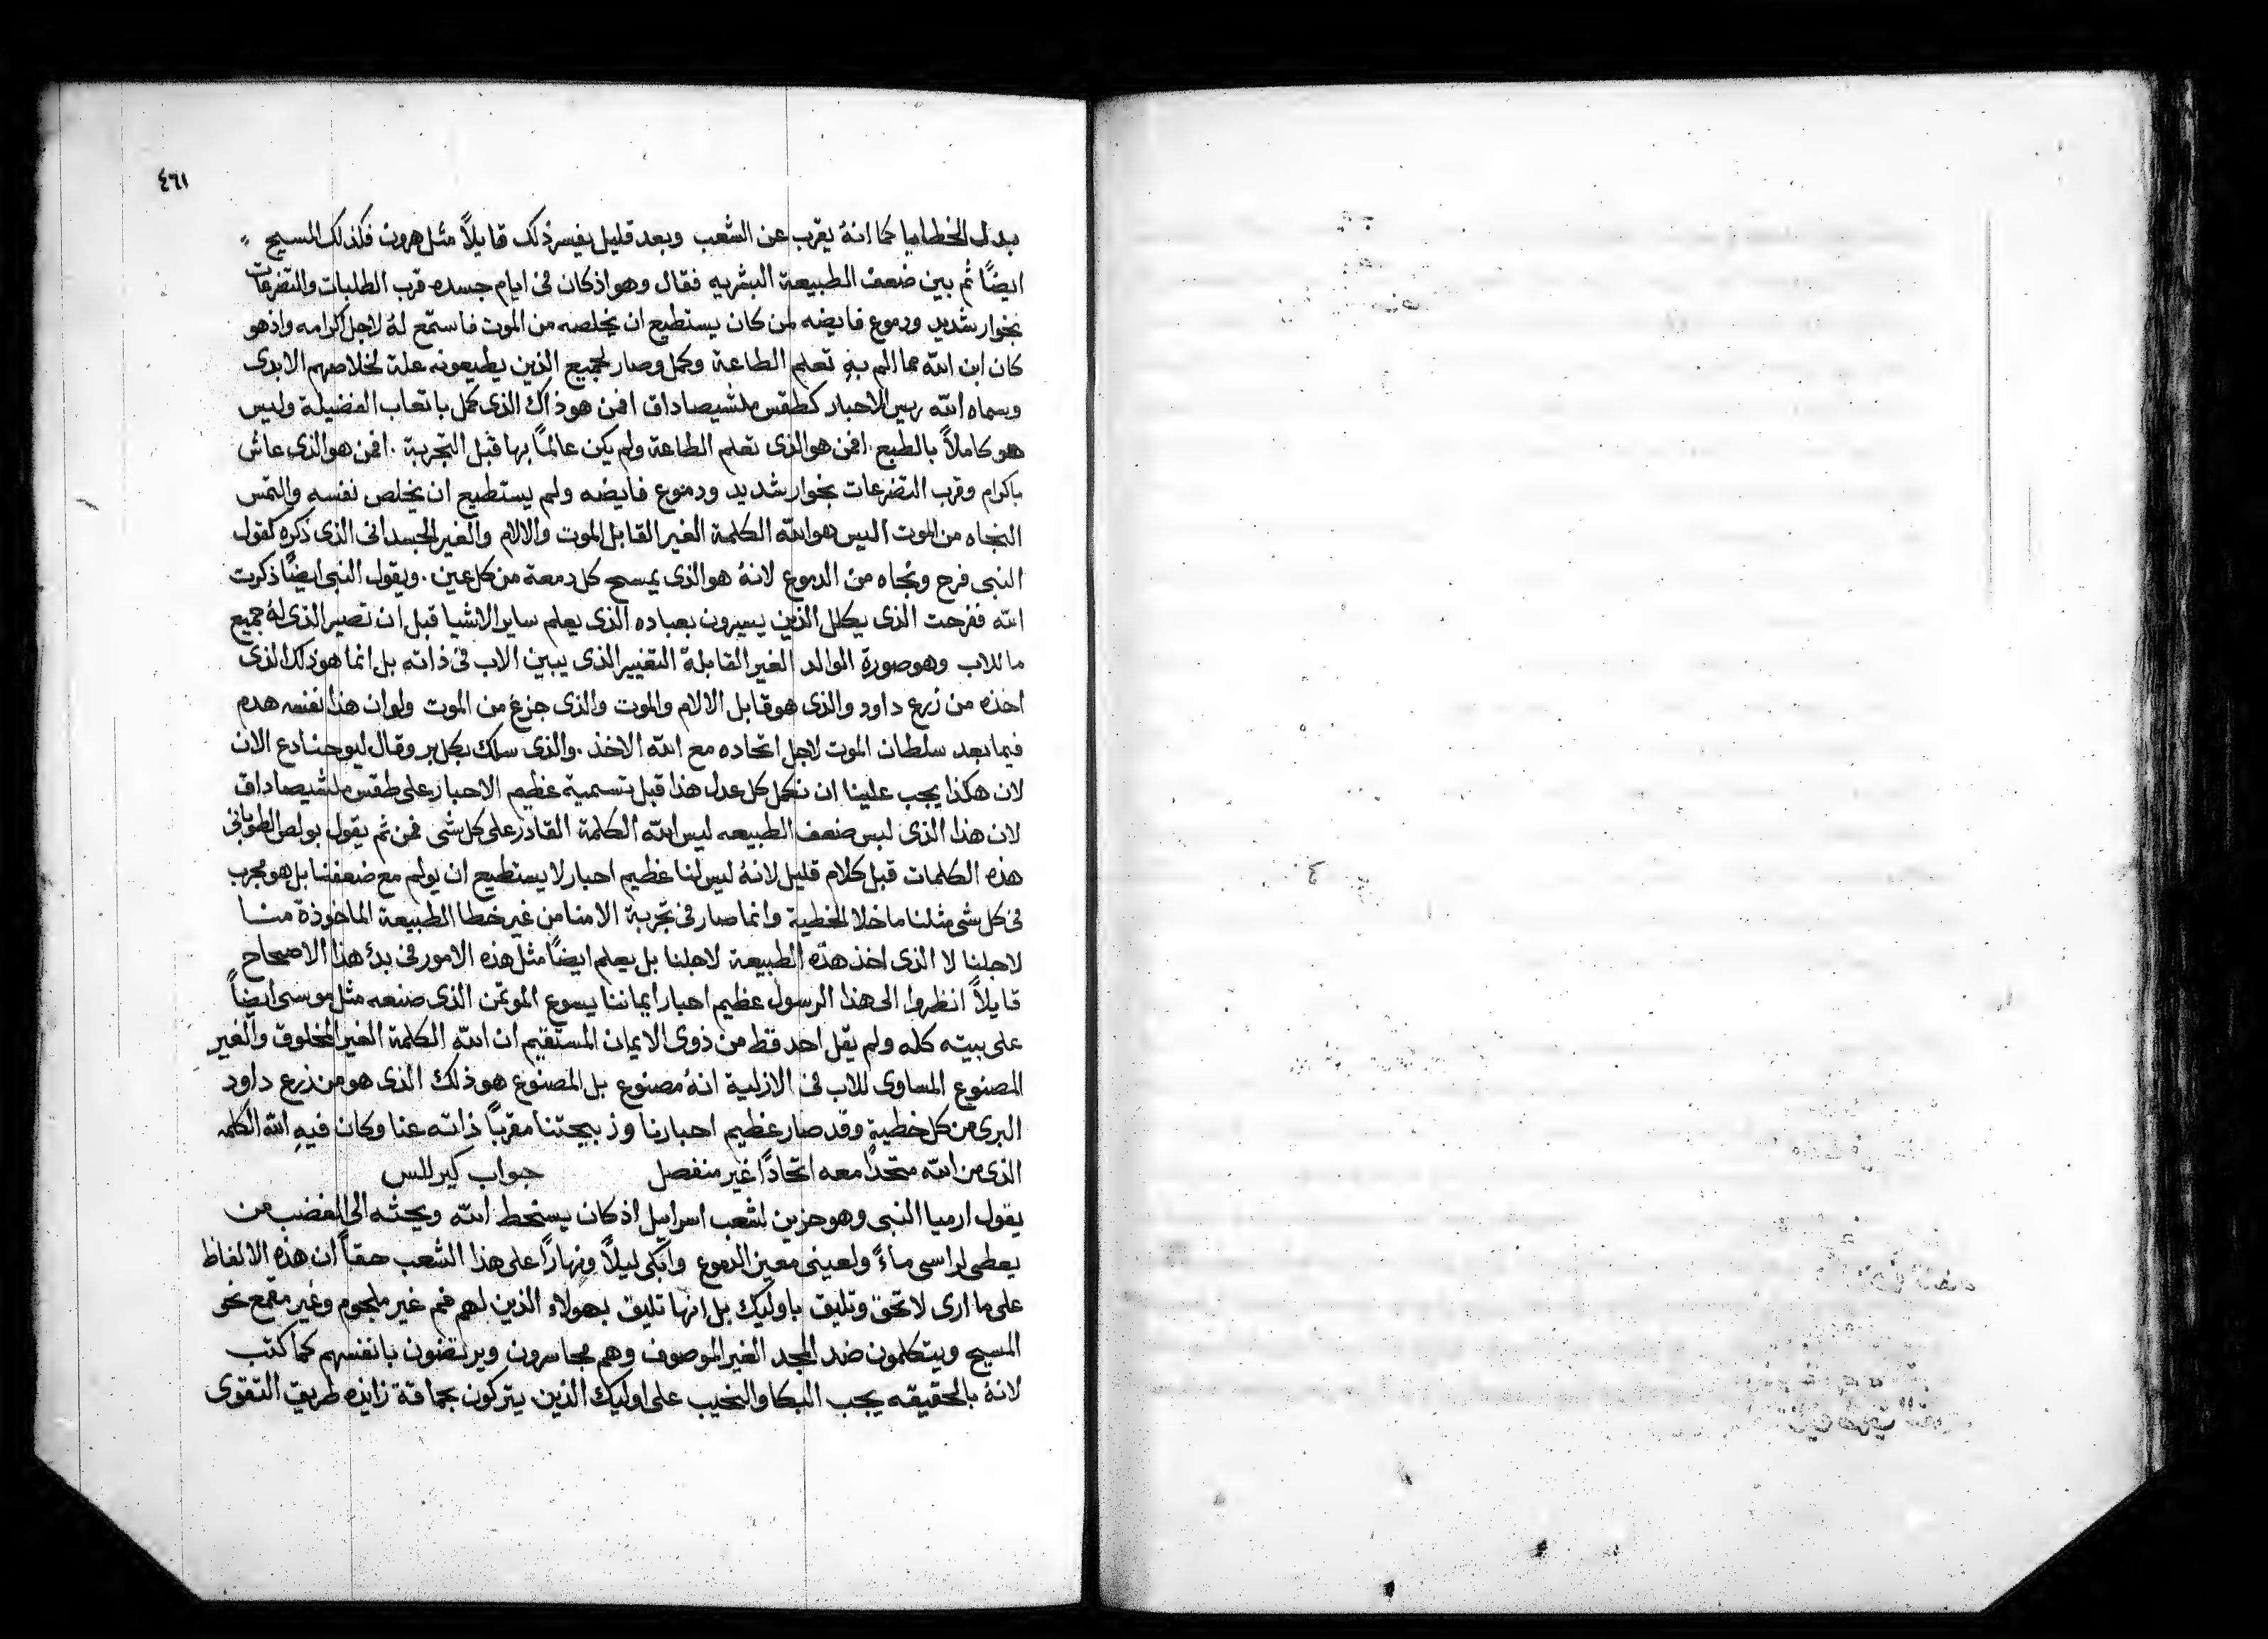 ٤٦١
بدل الخطايا كما انهُ يقرب عن الشعب وبعد قليل يفسر ذلك قايلاً مثل هرون فكذلك المسيح
ايضًا ثم بين ضعف الطبيعة البشريه فقال وهو اذ كان فى ايام جسده قرب الطلبات والتضرعات
بخوار شديد ودموع فايضه لمن كان يستطيع ان يخلصه من الموت فاستمع لهُ لاجل اكرامه واذ هو
كان ابن الله مما الم بهِ تعلم الطاعة وكمل وصار لجميع الذين يطيعونه علة لخلاصهم الابدى
وسماه الله ريس الاحبار كطقس ملشيصاداق افمن هو ذاك الذى كمل باتعاب الفضيلة وليس
هو كاملاً بالطبع. افمن هو الذى تعلم الطاعة ولم يكن عالمًا بها قبل التجربة. افمن هو الذى عاش
باكرام وقرب التضرعات بخوار شديد ودموع فايضه ولم يستطيع ان يخلص نفسه والتمس
النجاه من الموت اليس هو الله الكلمة الغير القابل الموت والالام والغير الجسدانى الذى ذكره كقول
النبى فرح ونجاه من الدموع لانهُ هو الذى يمسح كل دمعة من كل عين. ويقول النبى ايضًا ذكرت
الله ففرحت الذى يكلل الذين يسيرون بعباده الذى يعلم ساير الاشيا قبل ان تصير الذى لهُ جميع
ما للاب وهو صورة الوالد الغير القابلة التغيير الذى يبين الاب فى ذاته بل انما هو ذلك الذى
اخذه من زرع داود والذى هو قابل الالام والموت والذى جزع من الموت ولو ان هذا نفسه هدم
فيما بعد سلطان الموت لاجل اتحاده مع الله الاخذ. والذى سلك بكل بر وقال ليوحنا دع الان
لان هكذا يجب علينا ان نكمل كل عدل هذا قبل تسمية عظيم الاحبار على طقس ملشيصاداق
لان هذا الذى لبس ضعف الطبيعه ليس الله الكلمة القادر على كل شى فمن ثم يقول بولص الطوبانى
هذه الكلمات قبل كلام قليل لانهُ ليس لنا عظيم احبار لا يستطيع ان يولم مع ضعفنا بل هو مجرب
فى كل شى مثلنا ما خلا الخطية وانما صار فى تجربة الامنا من غير خطا الطبيعة الماخوذة منا
لاجلنا لا الذى اخذ هذه الطبيعة لاجلنا بل يعلم ايضًا مثل هذه الامور فى بدء هذا الاصحاح
قايلاً انظروا الى هذا الرسول عظيم احبار ايماننا يسوع الموتمن الذى صنعه مثل موسى ايضاً
على بيته كله ولم يقل احد قط من ذوى الايمان المستقيم ان الله الكلمة الغير المخلوق والغير
المصنوع المساوى للاب فى الازلية انهُ مصنوع بل المصنوع هو ذلك الذى هو من زرع داود
البرى من كل خطية وقد صار عظيم احبارنا وذبيحتنا مقربًا ذاته عنا وكان فيهِ الله الكلمه
الذى من الله متحدًا معه اتحادًا غير منفصل جواب كيرللس
يقول ارميا النبى وهو حزين لشعب اسراييل اذ كان يسخط الله ويحثه الى الغضب من
يعطى لراسى ماءً ولعينى معين الدموع وابكى ليلاً ونهارًا على هذا الشعب حقاً ان هذه الالفاظ
على ما ارى لا تحق وتليق باوليك بل انها تليق بهولاء الذين لهم فم غير ملجوم وغير مقمع نحو
المسيح ويتكلمون ضد المجد الغير الموصوف وهم مجاسرون ويرتضون بانفسهم كما كتب
لانهُ بالحقيقه يجب البكا والنحيب على اوليك الذين يتركون بحماقة زايده طريق التقوى